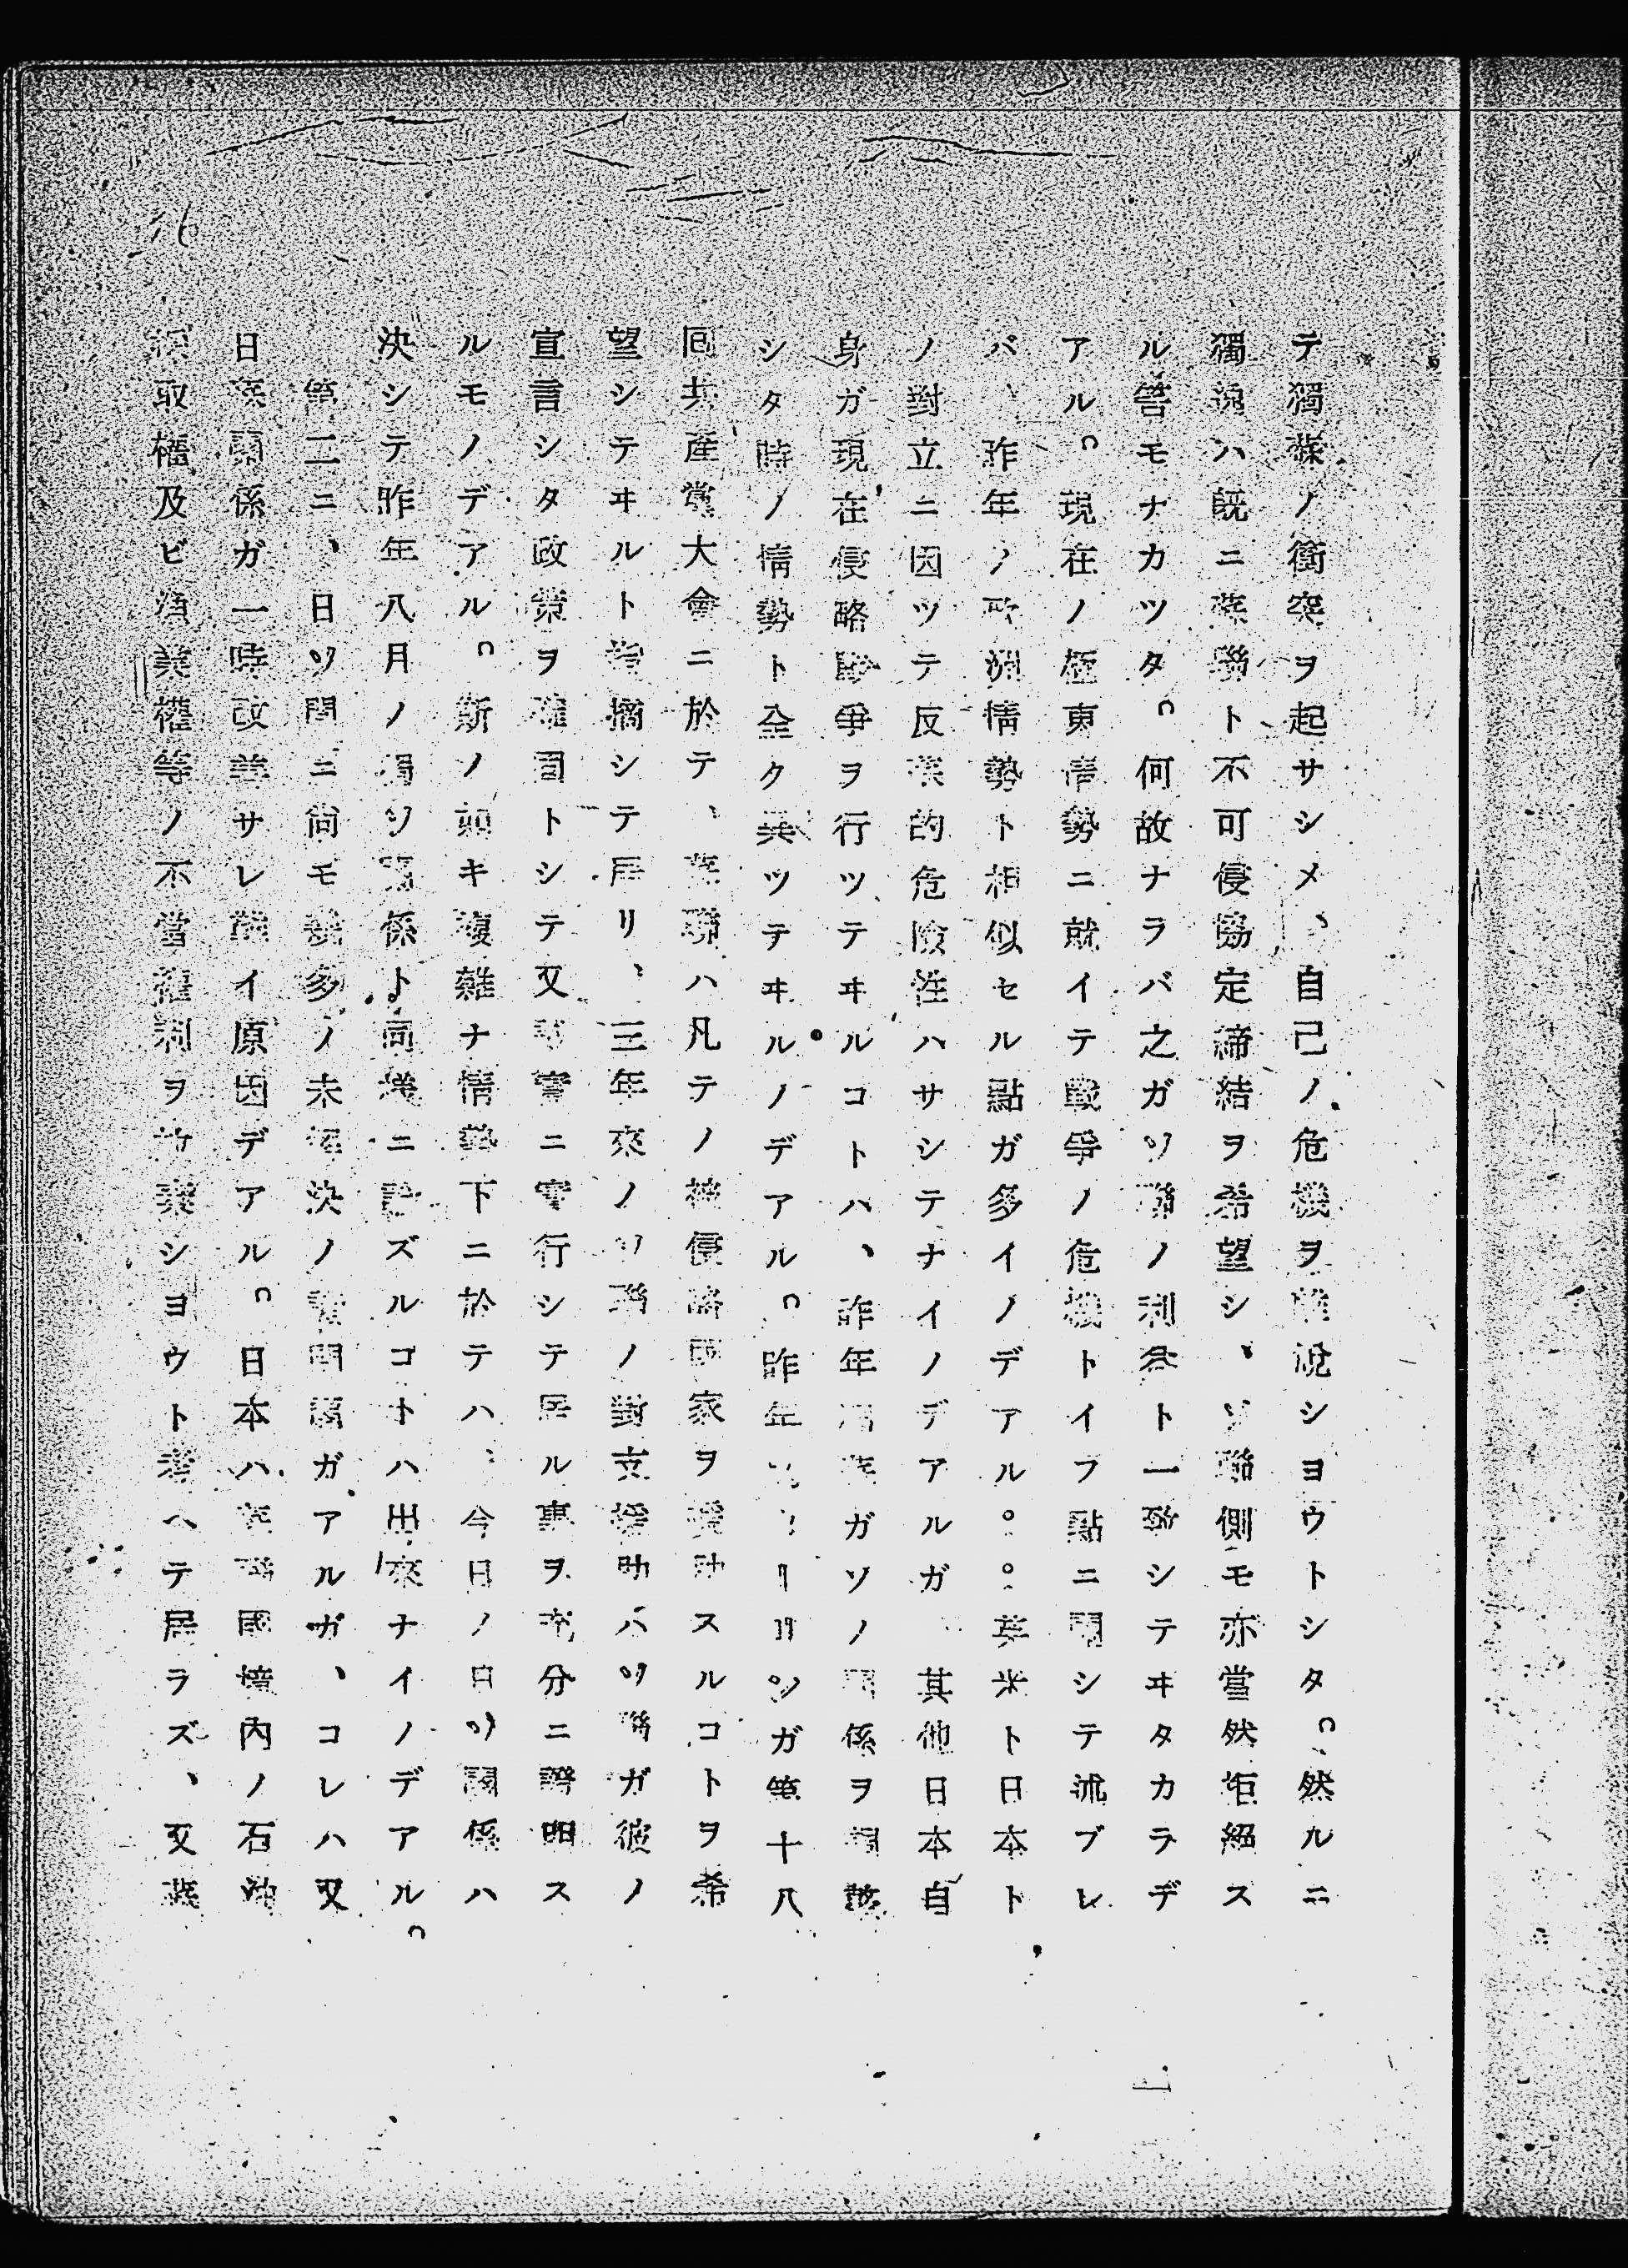 テ獨蘇ノ衝突ヲ起サシメ、自己ノ危機ヲ離脱シヨウトシタ。然ルニ
獨逸ハ既ニ蘇聯ト不可侵協定締結ヲ希望シ、ソ聯側モ亦當然拒絕ス
ル筈モナカツタ。何故ナラバ之ガソ聯ノ利益ト一致シテヰタカラデ
アル。現在ノ極東情勢ニ就イテ戰爭ノ危機トイフ點ニ關シテ述ブレ
バ、昨年ノ歐洲情勢ト相似セル點ガ多イノデアル。英米ト日本ト
ノ對立ニ因ツテ反蘇的危險性ハサシテナイノデアルガ、其他日本自
身ガ現在侵略戰爭ヲ行ツテヰルコトハ、昨年獨蘇ガソノ關係ヲ調整
シタ時ノ情勢ト全ク異ツテヰルノデアル。昨年スターリンガ第十八
回共產黨大會ニ於テ、蘇聯ハ凡テノ被侵略國家ヲ援助スルコトヲ希
望シテヰルト指摘シテ居リ、三年來ノソ聯ノ對支援助ハソ聯ガ彼ノ
宣言シタ政策ヲ確固トシテ又事實ニ實行シテ居ル事ヲ充分ニ證明ス
ルモノデアル。斯ノ如キ複雜ナ情勢下ニ於テハ、今日ノ日ソ關係ハ
決シテ昨年八月ノ獨ソ關係ト同樣ニ論ズルコトハ出來ナイノデアル。
第二ニ、日ソ間ニ尙モ幾多ノ未解決ノ諸問題ガアルガ、コレハ又
日蘇關係ガ一時改善サレ難イ原因デアル。日本ハ蘇聯國境內ノ石油
採取權及ビ漁業權等ノ不當權利ヲ放棄シヨウト考ヘテ居ラズ、又蘇